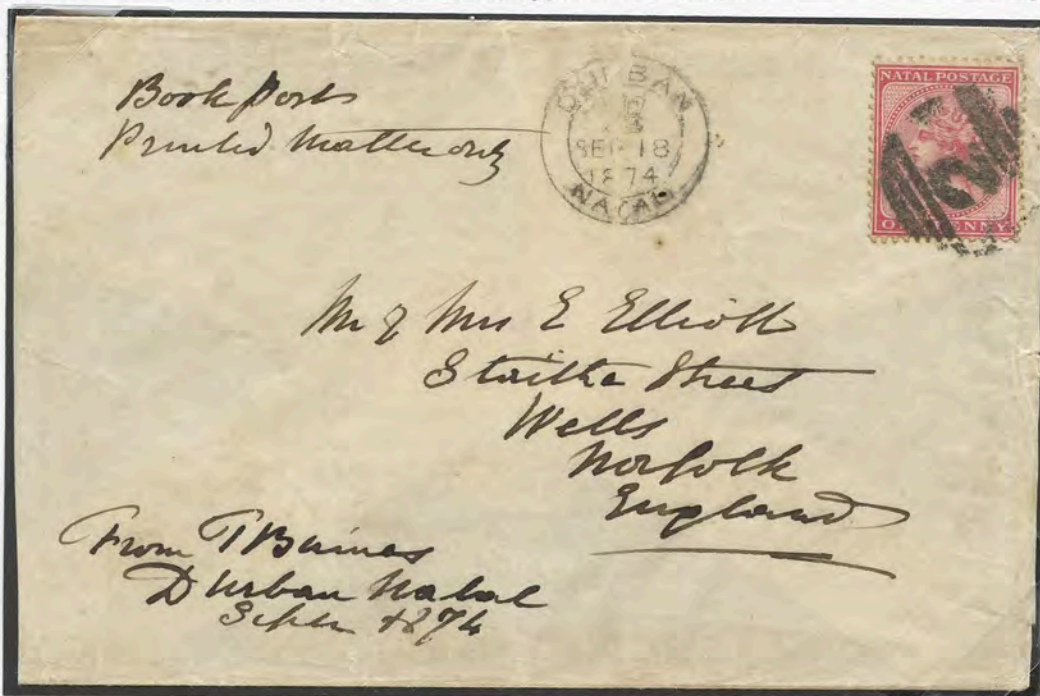 Book Post
Printed Matter only
DURBAN
SEP 18
1874
NATAL
NATAL POSTAGE
ONE PENNY
Mr & Mrs E Elliott
Staithe Street
Wells
Norfolk
England
From T Baines
Durban Natal
Septr 1874